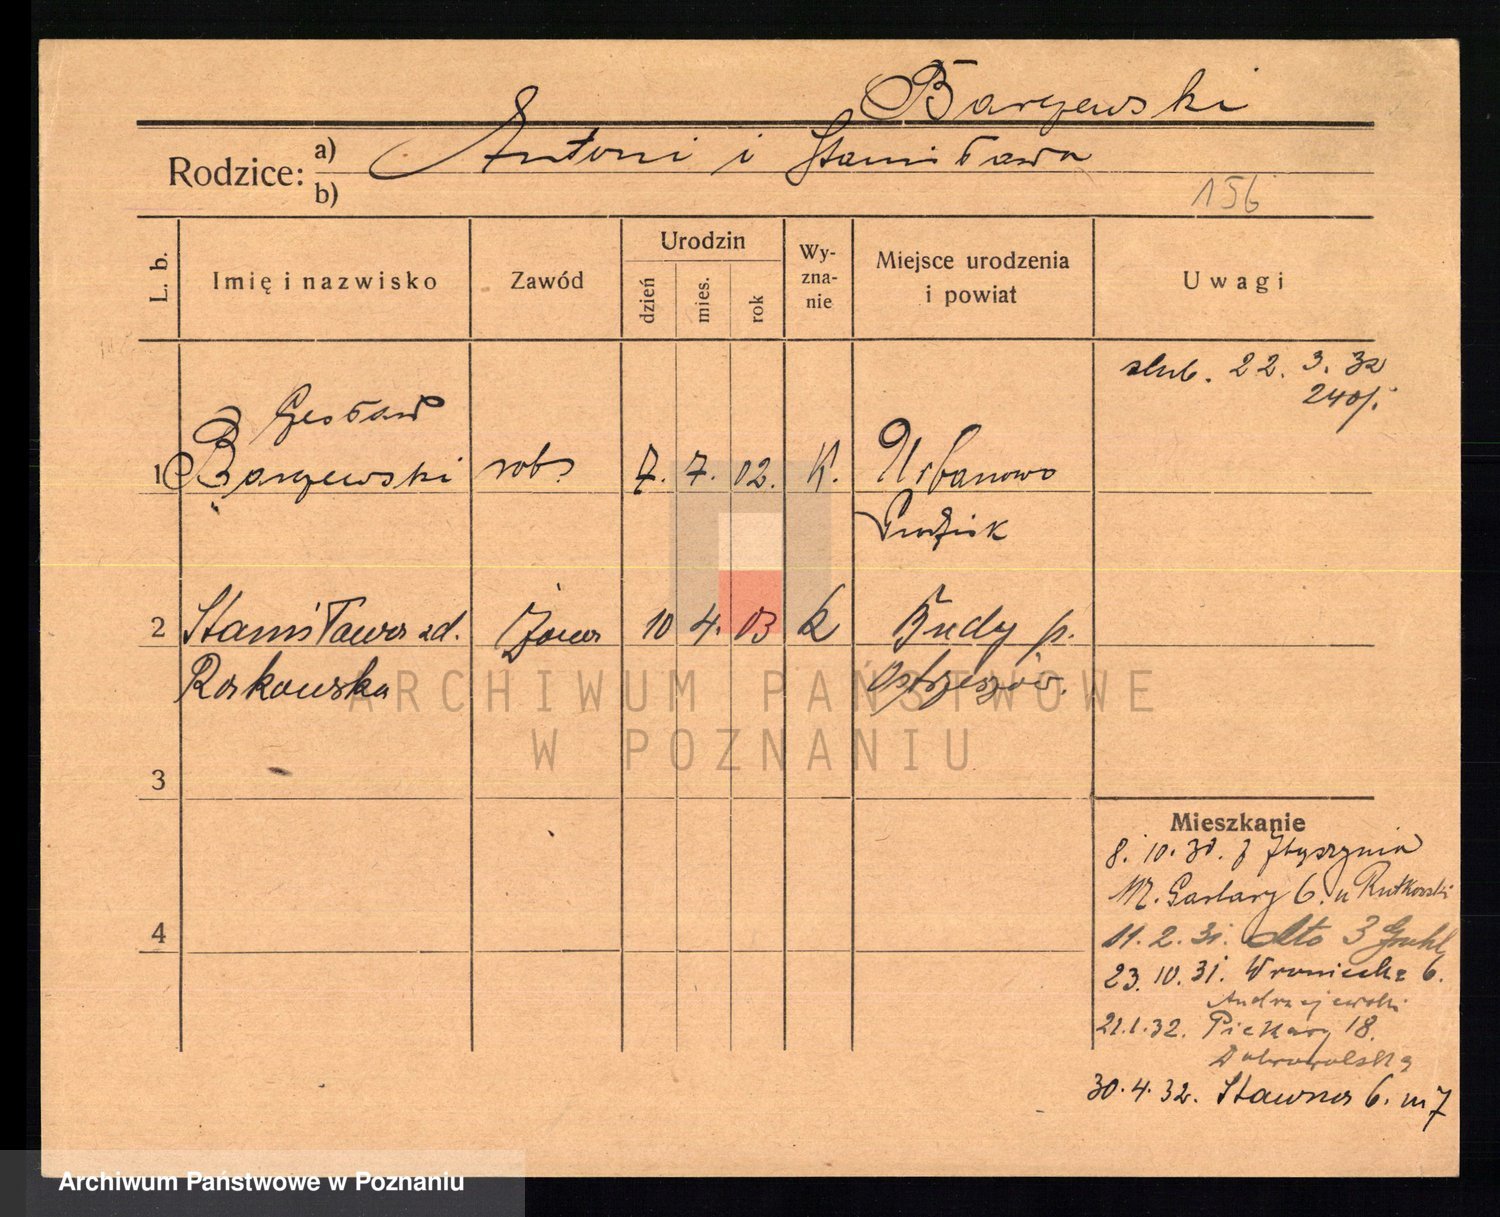 Barczewski
Rodzice: a) Antoni i Stanisława
b)
156
L. b.
Imię i nazwisko
Zawód
Urodzin
dzień
mies.
rok
Wy-
zna-
nie
Miejsce urodzenia
i powiat
Uwagi
ślub. 22. 3. 32
240/.
1 Czesław
Barczewski
rob.
7. 7. 02. K.
Urbanowo
Grodzisk
2 Stanisława zd.
Roskowska
Żona
10 4. 03 K
Budy p.
Ostrzeszów.
3
4
Mieszkanie
8. 10. 30. z
M. Garbary 6. u Rutkowski
11. 2. 31. dto 3
23. 10. 31. Wroniecka 6.
Andrzejewski
21.1.32. Piekary 18.
Dobrowolska
30.4.32. Stawna 6. m 7
ARCHIWUM PAŃSTWOWE
W POZNANIU
Archiwum Państwowe w Poznaniu